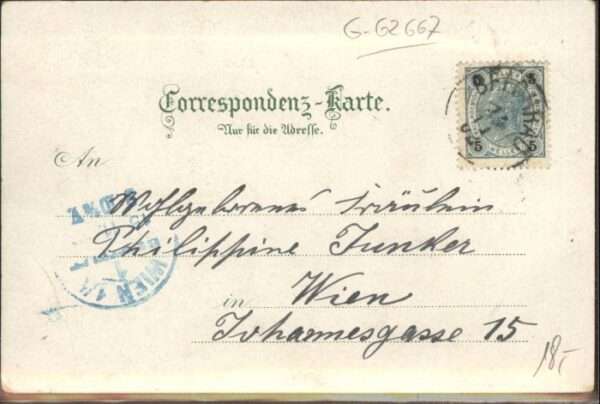 G-G2667
Correspondenz-Karte.
Nur für die Adresse.
An
Wohlgeborenes Fräulein
Philippine Junker
in Wien
Johannesgasse 15
18,-
5
5
5
HELLER
WIEN 1/1